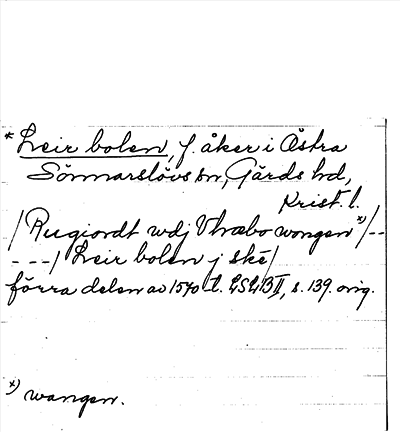 * Leir bolen, f. åker i Östra
Sönnarslövs sn, Gärds hd,
Krist. l.
/Rugiordt wdj Vhræbo wongen x)/--
---/ Leir bolen j ské/
förra delen av 1570-t. LSLB II, s. 139. orig.
x) wangen.